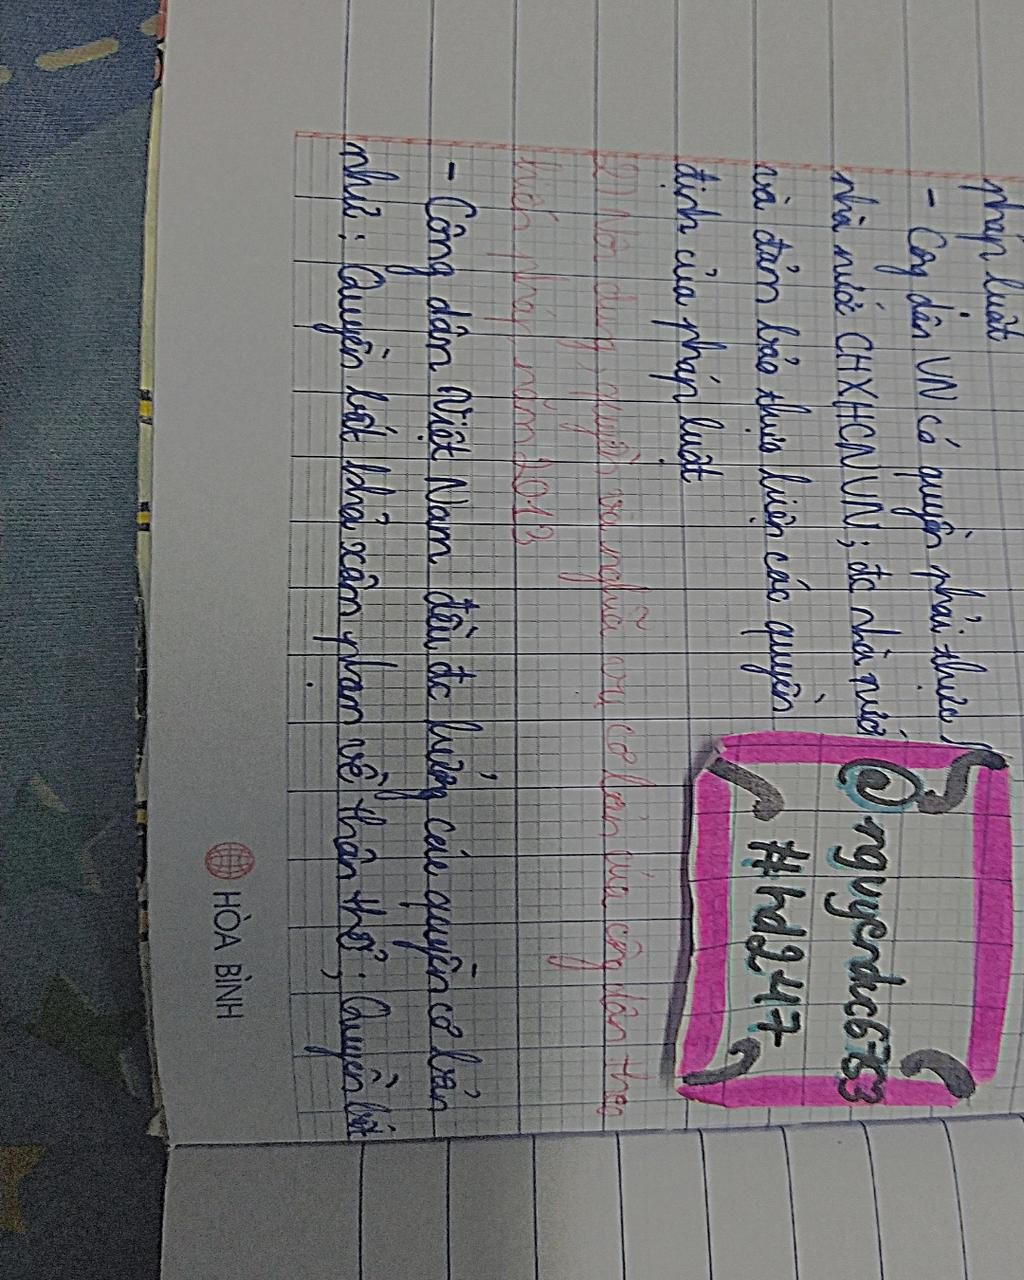 pháp luật
- Công dân VN có quyền phải thực
nhà nước CHXHCNVN; đc nhà nước
và đảm bảo thực hiện các quyền
định của pháp luật
2) Nội dung quyền và nghĩa vụ cơ bản của công dân theo
hiến pháp năm 2013
- Công dân Việt Nam đều đc hưởng các quyền cơ bản
như: Quyền bất khả xâm phạm về thân thể; Quyền bất
@nguyenduc6753
#hd247
HÒA BÌNH